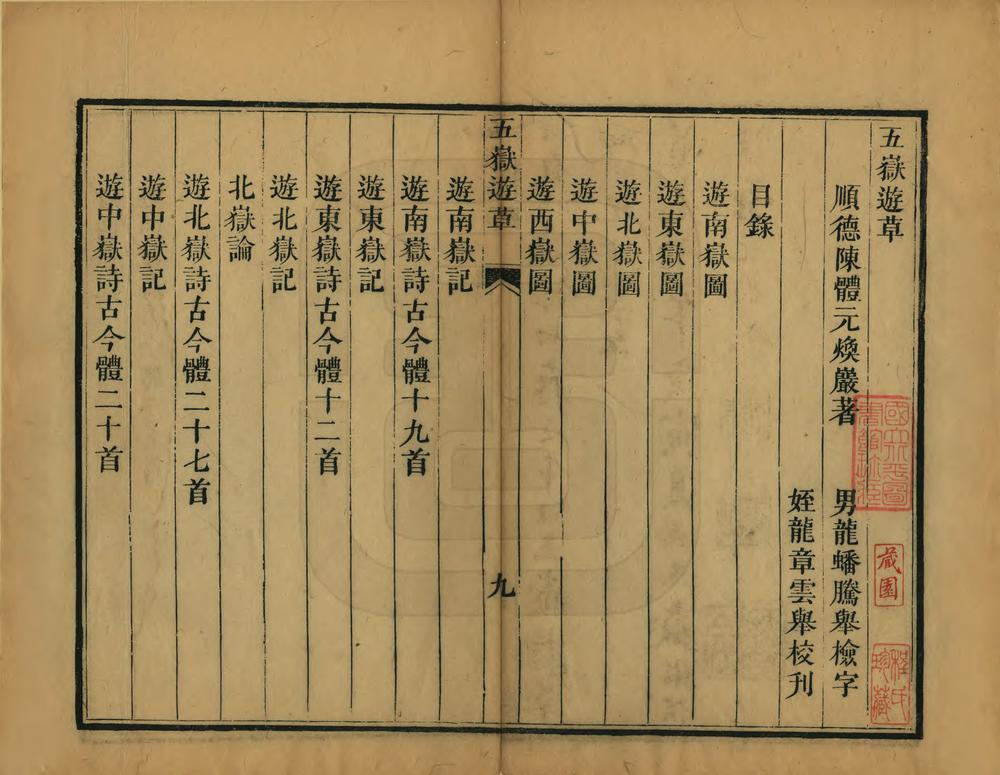 五嶽遊草
順德陳體元煥巖著　男龍蟠騰舉檢字
姪龍章雲舉校刋
目錄
遊南嶽圖
遊東嶽圖
遊北嶽圖
遊中嶽圖
遊西嶽圖
五嶽遊草　九
遊南嶽記
遊南嶽詩古今體十九首
遊東嶽記
遊東嶽詩古今體十二首
遊北嶽記
北嶽論
遊北嶽詩古今體二十七首
遊中嶽記
遊中嶽詩古今體二十首